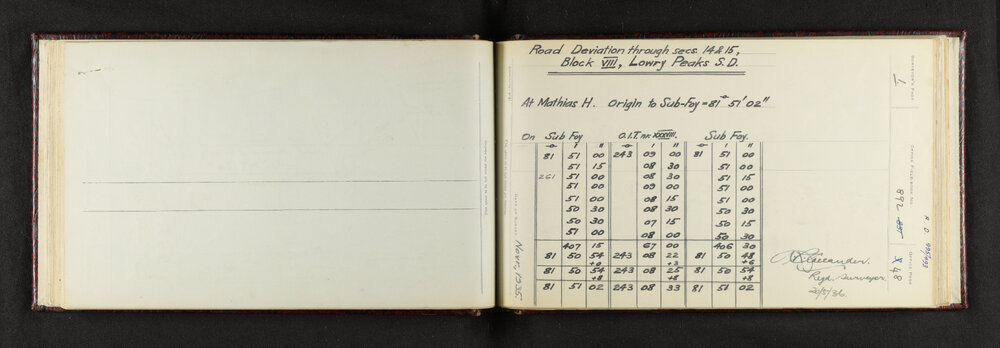 Road Deviation through secs 14 & 15,
Block VIII, Lowry Peaks S.D.
At Mathias H. Origin to Sub-Foy = 81° 51' 02"
On Sub Foy O.I.T. nr. XXXVIII. Sub Foy.
° ' " ° ' " ° ' "
81 51 00 243 09 00 81 51 00
51 15 08 30 51 00
261 51 00 08 30 51 15
51 00 09 00 51 00
51 00 08 15 51 00
50 30 08 30 50 30
50 30 07 15 50 15
51 00 08 00 50 30
407 15 67 00 406 30
81 50 54 243 08 22 81 50 48
+0 +3 +6
81 50 54 243 08 25 81 50 54
+8 +8 +8
81 51 02 243 08 33 81 51 02
Regd. Surveyor.
20/5/36.
Novr, 1935.
892
848
R. D.